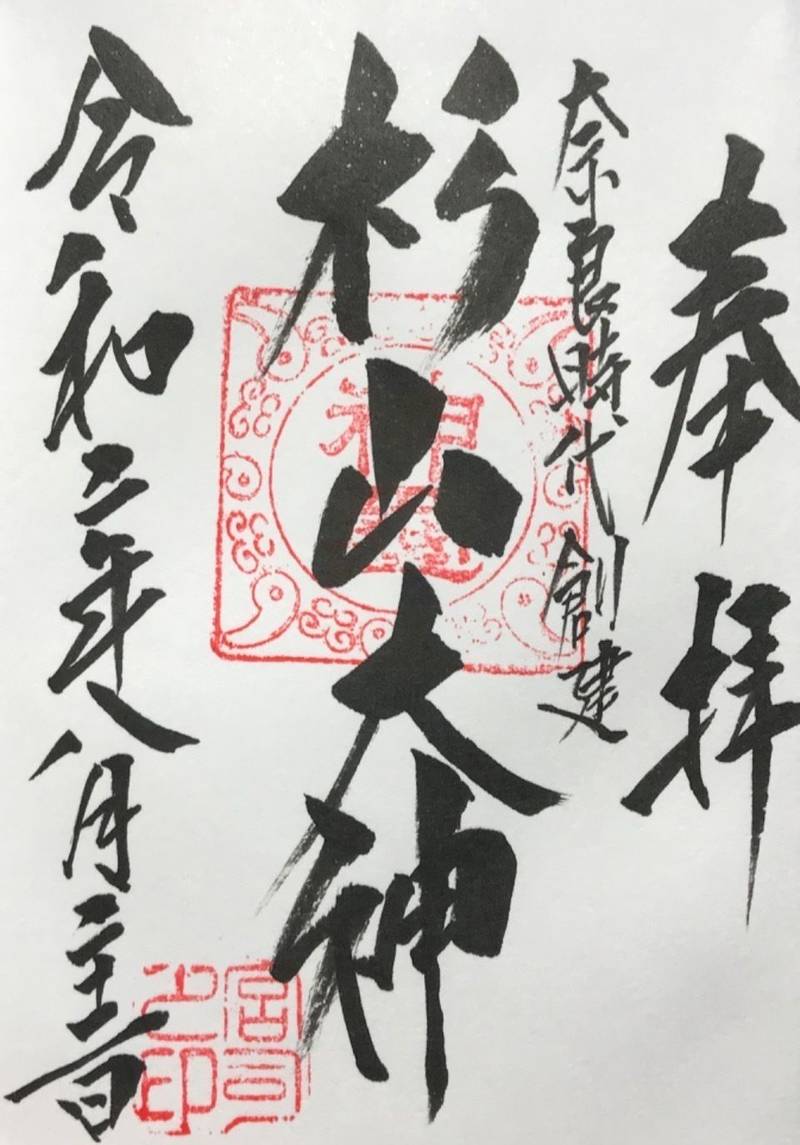 奉拝
奈良時代創建
杉山大神
令和二年八月二十日
宮司之印